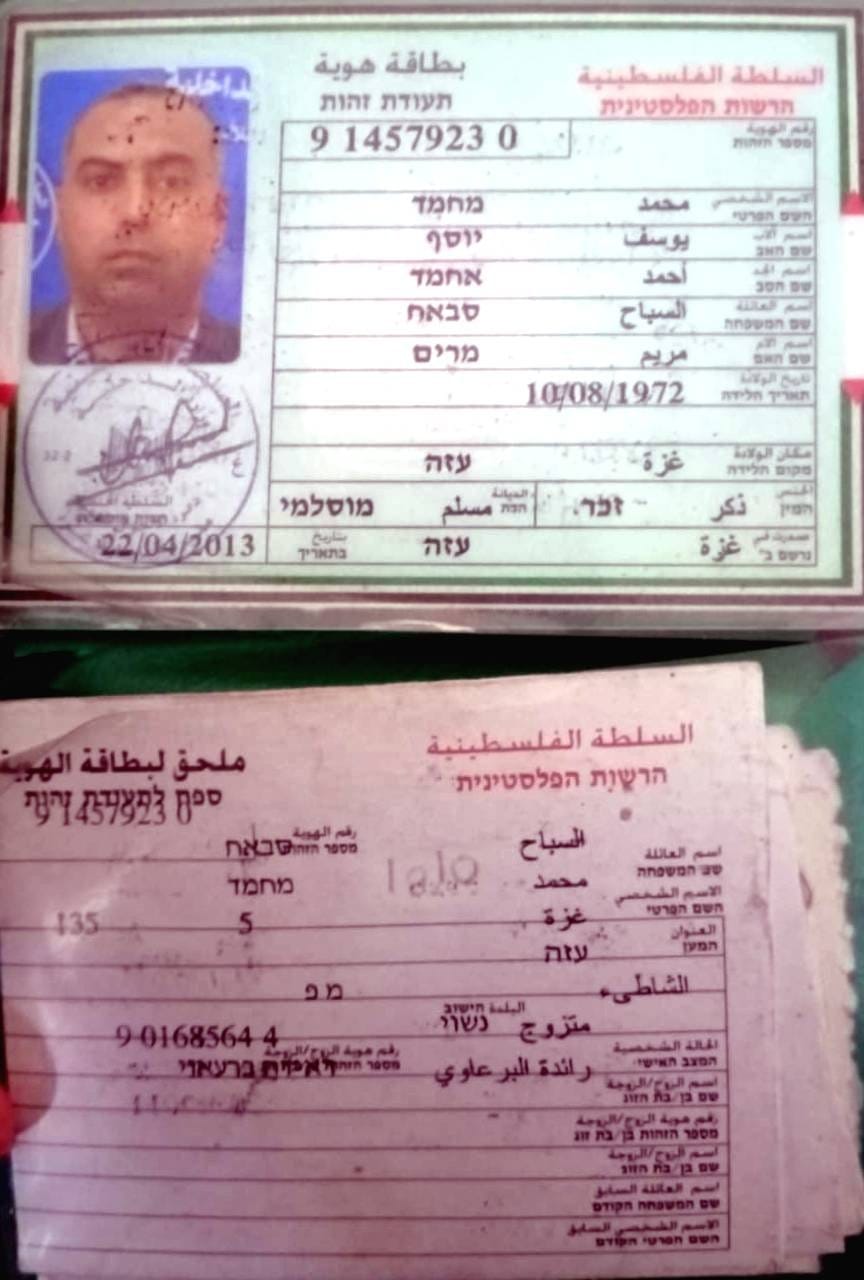 بطاقة هوية
תעודת זהות
السلطة الفلسطينية
הרשות הפלסטינית
رقم الهوية
מספר הזהות
9 1457923 0
الاسم الشخصي محمد מחמד
השם הפרטי
اسم الاب يوسف יוסף
שם האב
اسم الجد أحمد אחמד
שם הסב
اسم العائلة السباح סבאח
שם המשפחה
اسم الام مريم מרים
שם האם
تاريخ الولادة 10/08/1972
תאריך הלידה
مكان الولادة غزة עזה
מקום הלידה
الجنس ذكر זכר. الديانة مسلم מוסלמי
המין הדת
صدرت في غزة עזה بتاريخ 22/04/2013
נרשם ב' בתאריך
السلطة الفلسطينية
הרשות הפלסטינית
ملحق لبطاقة الهوية
ספח לתעודת זהות
9 1457923 0
رقم الهوية
מספר הזהות
اسم العائلة السباح סבאח
שם המשפחה
الاسم الشخصي محمد מחמד
השם הפרטי
العنوان غزة 5 135
המען עזה
الشاطىء מ פ
البلدة הישוב
الحالة الشخصية متزوج נשוי
המצב האישי
9 0168564 4
رقم هوية الزوج/الزوجة
اسم الزوج/الزوجة رائدة البرعاوي ברעאוי
שם בן/בת הזוג
رقم هوية الزوج/الزوجة
מספר הזהות בן/בת זוג
اسم الزوج/الزوجة
שם בן/בת הזוג
اسم العائلة السابق
שם המשפחה הקודם
الاسم الشخصي السابق
השם הפרטי הקודם